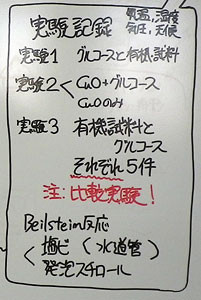 実験記録
気温,湿度
気圧,天候
実験1 グルコースと有機試料
実験2 < CuO+グルコース
CuOのみ
実験3 有機試料と
グルコース
それぞれ5件
注:比較実験!
Beilstein反応
塩ビ(水道管)
発泡スチロール